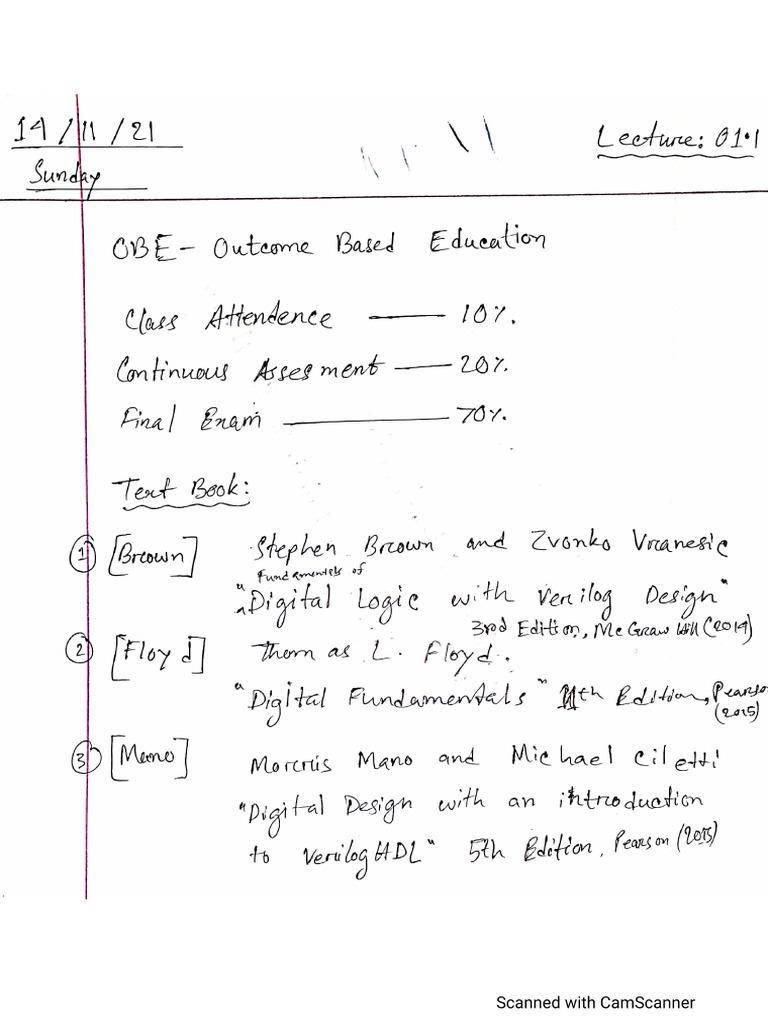 14/11/21
Lecture: 01.1
Sunday
OBE - Outcome Based Education
Class Attendence —— 10%.
Continuous Assesment —— 20%.
Final Exam ———— 70%.
Text Book:
① [Brown] Stephen Brown and Zvonko Vranesic
Fundamentals of
"Digital Logic with Verilog Design"
3rd Edition, Mc Graw Hill (2014)
② [Floyd] Thomas L. Floyd.
"Digital Fundamentals" 11th Edition, Pearson
(2015)
③ [Mano] Morris Mano and Michael Ciletti
"Digital Design with an introduction
to Verilog HDL" 5th Edition, Pearson (2015)
Scanned with CamScanner